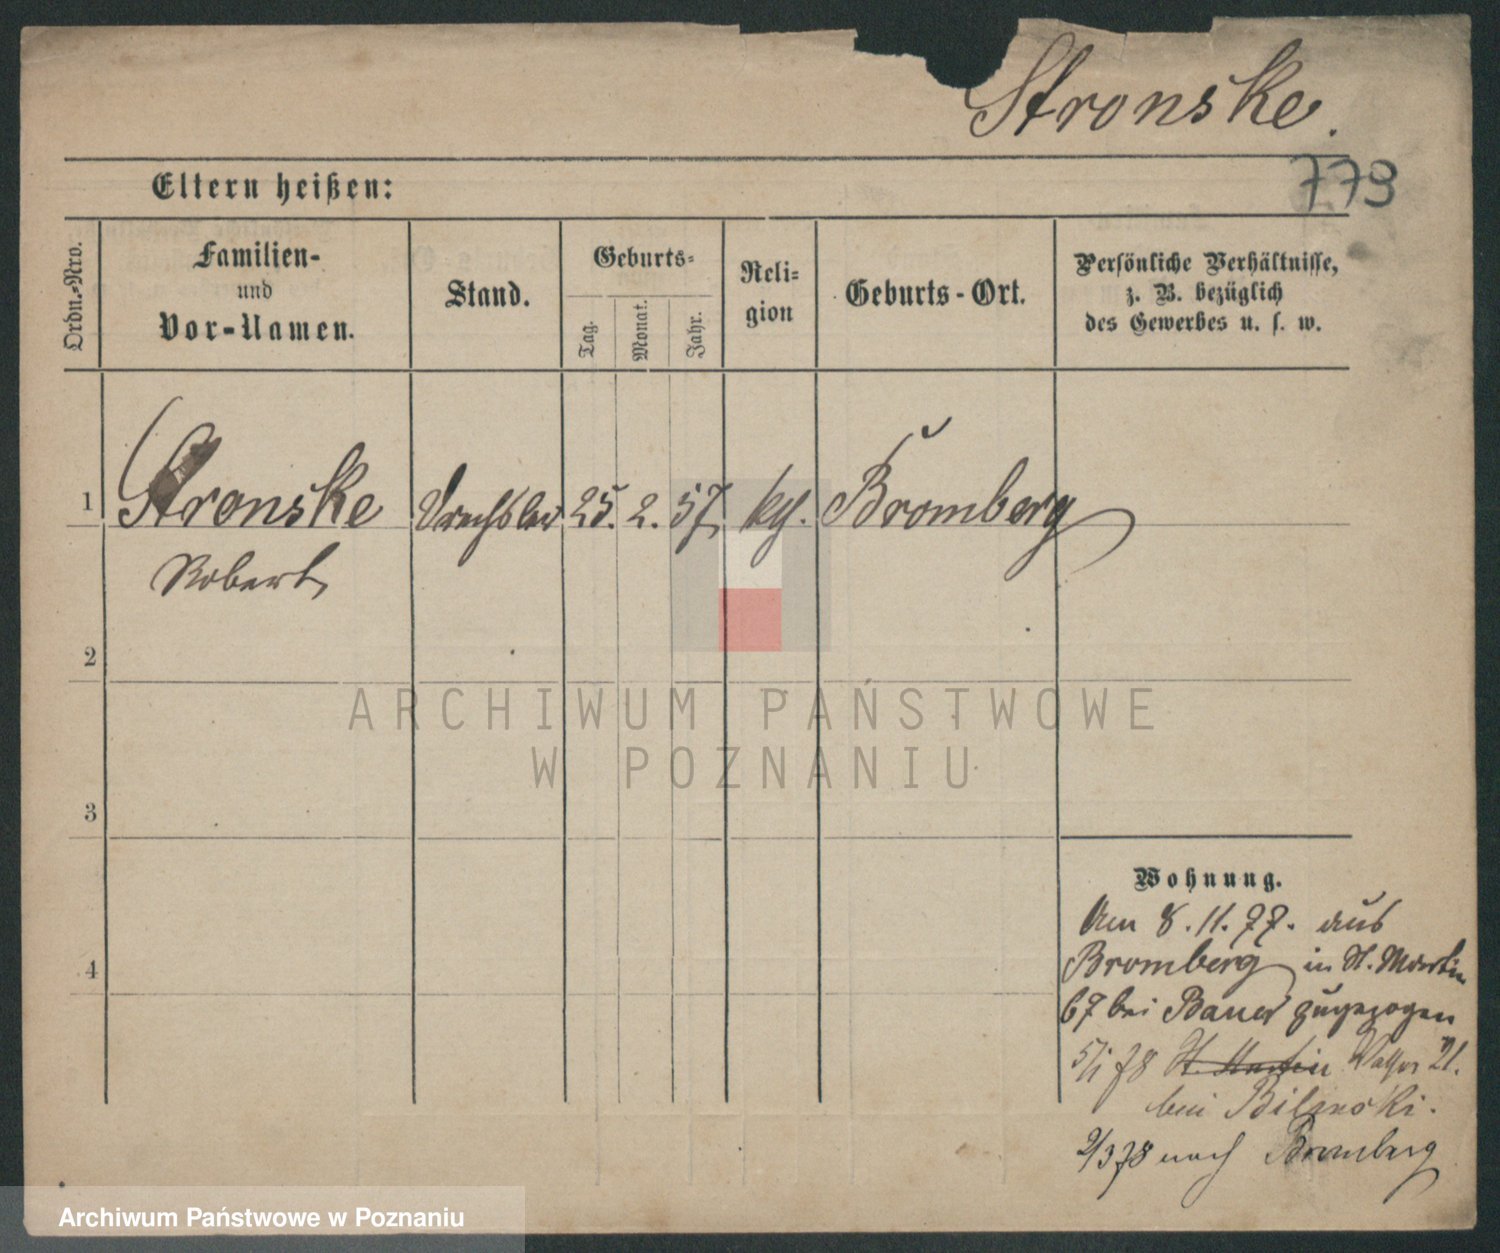 Stronske.
779
Eltern heißen:
Ordn.-Nro.
Familien-
und
Vor-Namen.
Stand.
Geburts-
Tag.
Monat.
Jahr.
Reli-
gion
Geburts-Ort.
Persönliche Verhältnisse,
z. B. bezüglich
des Gewerbes u. s. w.
1 Stronske Drechsler 25. 2. 57 kth. Bromberg
Robert
2
3
4
Wohnung.
Am 8. 11. 77. aus
Bromberg in St. Martin
67 bei Bauer zugezogen
5/1 78 St. Martin 21.
bei Bilinski.
2/3 78 nach Bromberg
ARCHIWUM PAŃSTWOWE
W POZNANIU
Archiwum Państwowe w Poznaniu